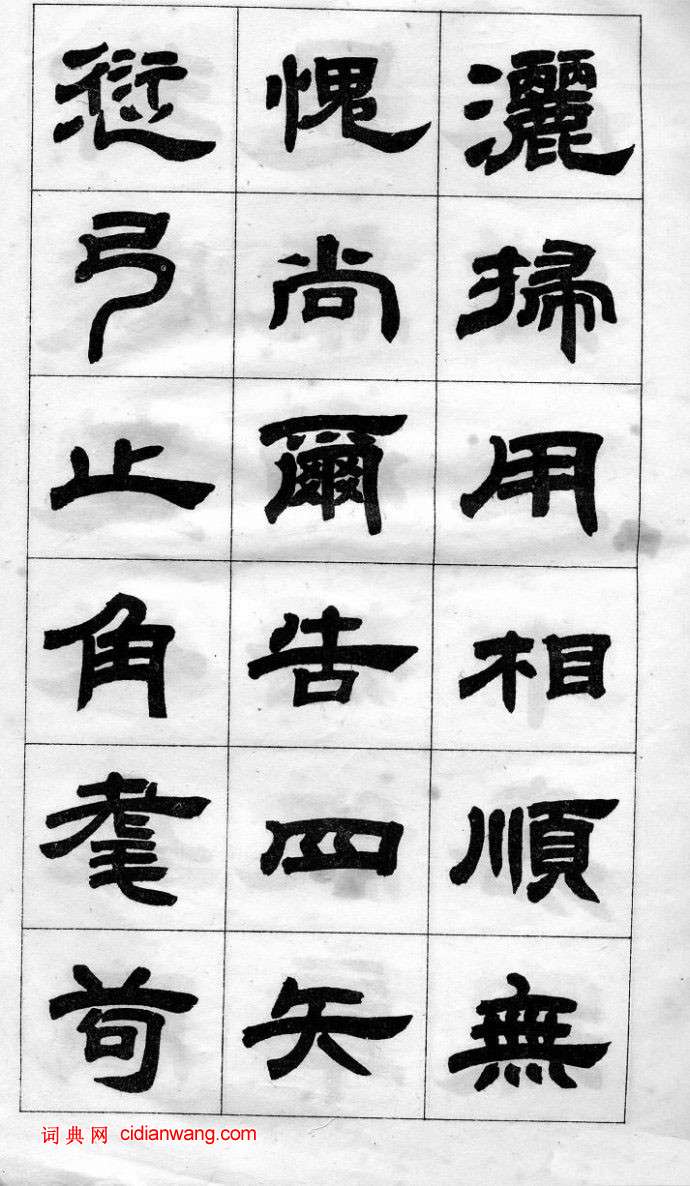 灑掃用相順無
愧尚爾告四矢
愆弓止角耄苟
词典网 cidianwang.com